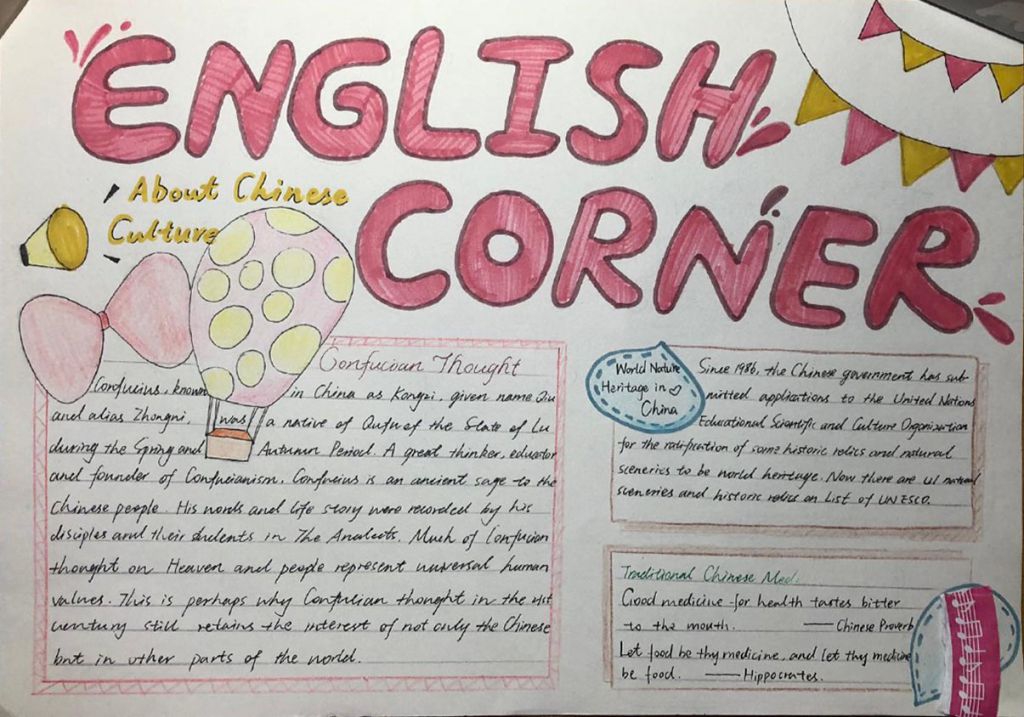 ENGLISH
CORNER
About Chinese
Culture
Confucian Thought
Confucius, known in China as Kongzi, given name Qiu
and alias Zhongni, was a native of Qufu of the State of Lu
during the Spring and Autumn Period. A great thinker, educator
and founder of Confucianism, Confucius is an ancient sage to the
Chinese people. His words and life story were recorded by his
disciples and their students in The Analects. Much of Confucian
thought on Heaven and people represent universal human
values. This is perhaps why Confucian thought in the 21st
century still retains the interest of not only the Chinese
but in other parts of the world.
World Nature
Heritage in
China
Since 1986, the Chinese government has sub-
mitted applications to the United Nations
Educational Scientific and Culture Organization
for the ratification of some historic relics and natural
sceneries to be world heritage. Now there are natural
sceneries and historic relics on List of UNESCO.
Traditional Chinese Med.
Good medicine for health tastes bitter
to the mouth. —— Chinese Proverb
Let food be thy medicine, and let thy medicine
be food. —— Hippocrates.